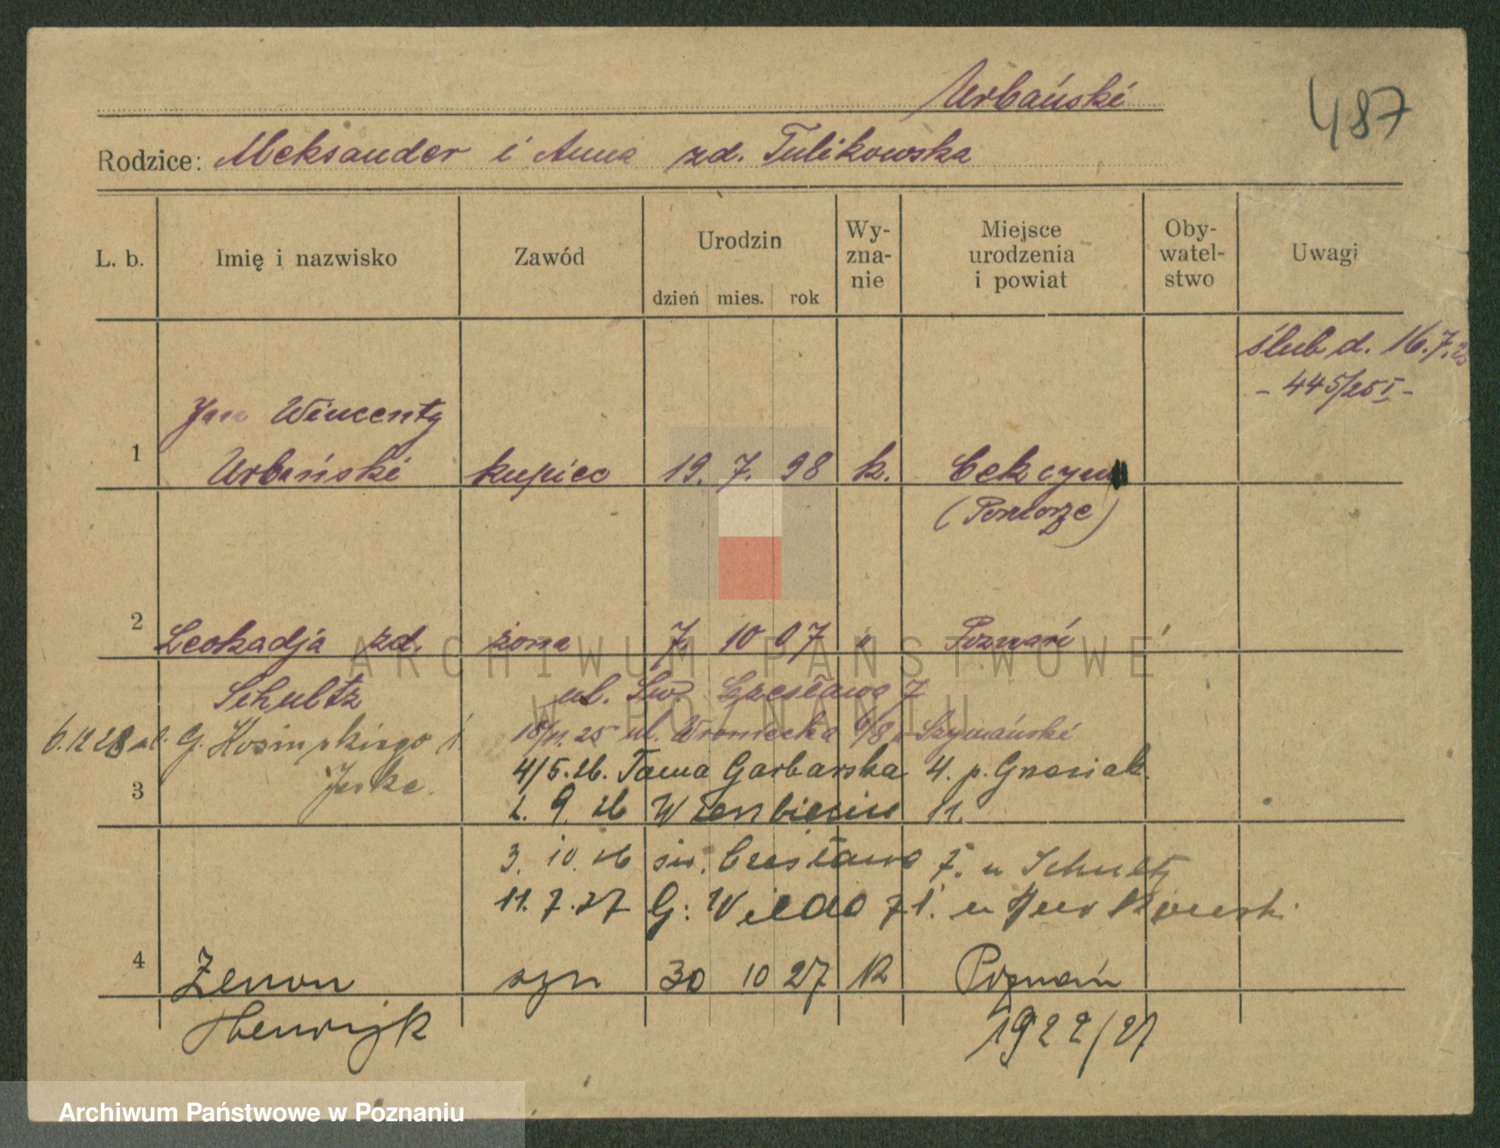 Urbański
487
Rodzice: Aleksander i Anna zd. Tulikowska
L. b. Imię i nazwisko Zawód Urodzin dzień mies. rok Wy-zna-nie Miejsce urodzenia i powiat Oby-watel-stwo Uwagi
ślub d. 16.7.25
- 445/25 I -
Jan Wincenty
1 Urbański kupiec 19. 7. 98 k. Cekcyn
(Pomorze)
2 Leokadja zd. żona 7. 10 07 k Poznań
Schultz ul. Św. Czesława 7
6.12 28 ul. G. 1 18/11. 25 ul. Wroniecka 6/8 Szymański
Jeske. 4/5.26. Tama Garbarska 4. p.
3 2. 9. 26 11.
3. 10. 26 św. Czesława 7. u Schultz
11. 7. 27 G: Wilda 71. u
4 Zenon syn 30 10 27 k Poznań
Henryk 1922/27
ARCHIWUM PAŃSTWOWE
W POZNANIU
Archiwum Państwowe w Poznaniu